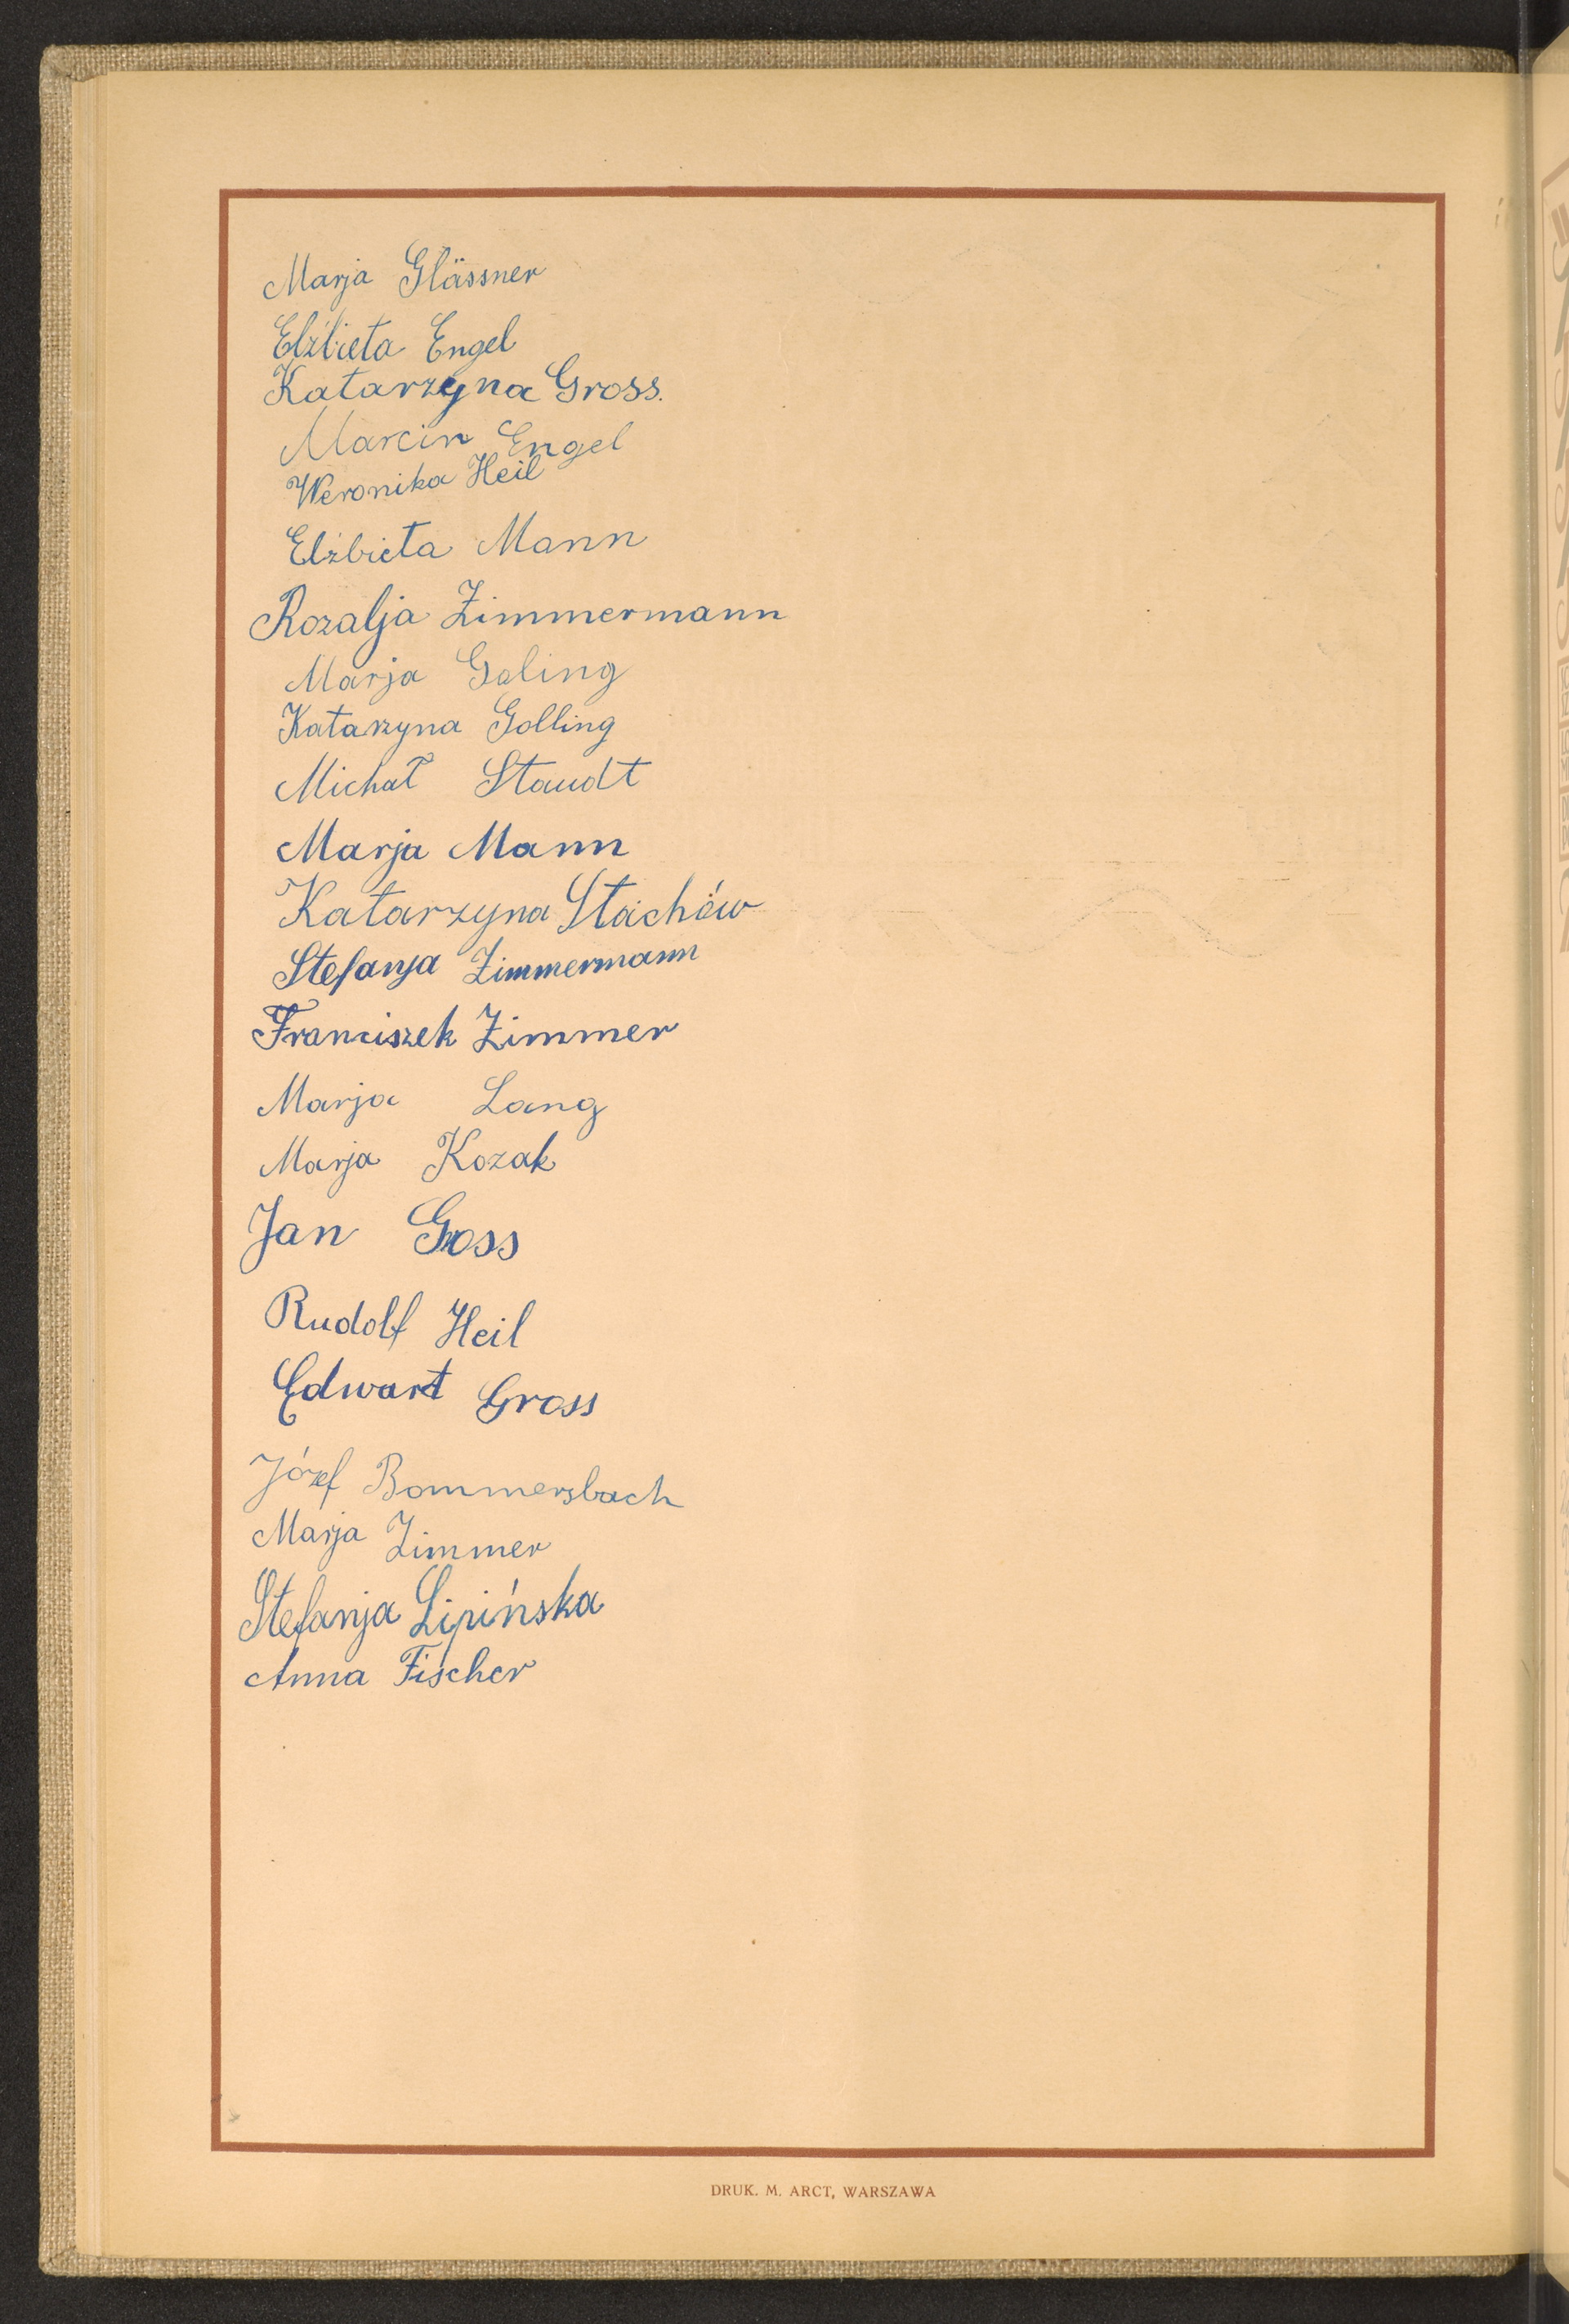 Marja Glässner
Elżbieta Engel
Katarzyna Gross.
Marcin Engel
Weronika Heil
Elżbieta Mann
Rozalja Zimmermann
Marja Galing
Katarzyna Golling
Michał Staudt
Marja Mann
Katarzyna Stachów
Stefanja Zimmermann
Franciszek Zimmer
Marja Lang
Marja Kozak
Jan Gross
Rudolf Heil
Edwart Gross
Józef Bommersbach
Marja Zimmer
Stefanja Lipińska
Anna Fischer
DRUK. M. ARCT, WARSZAWA